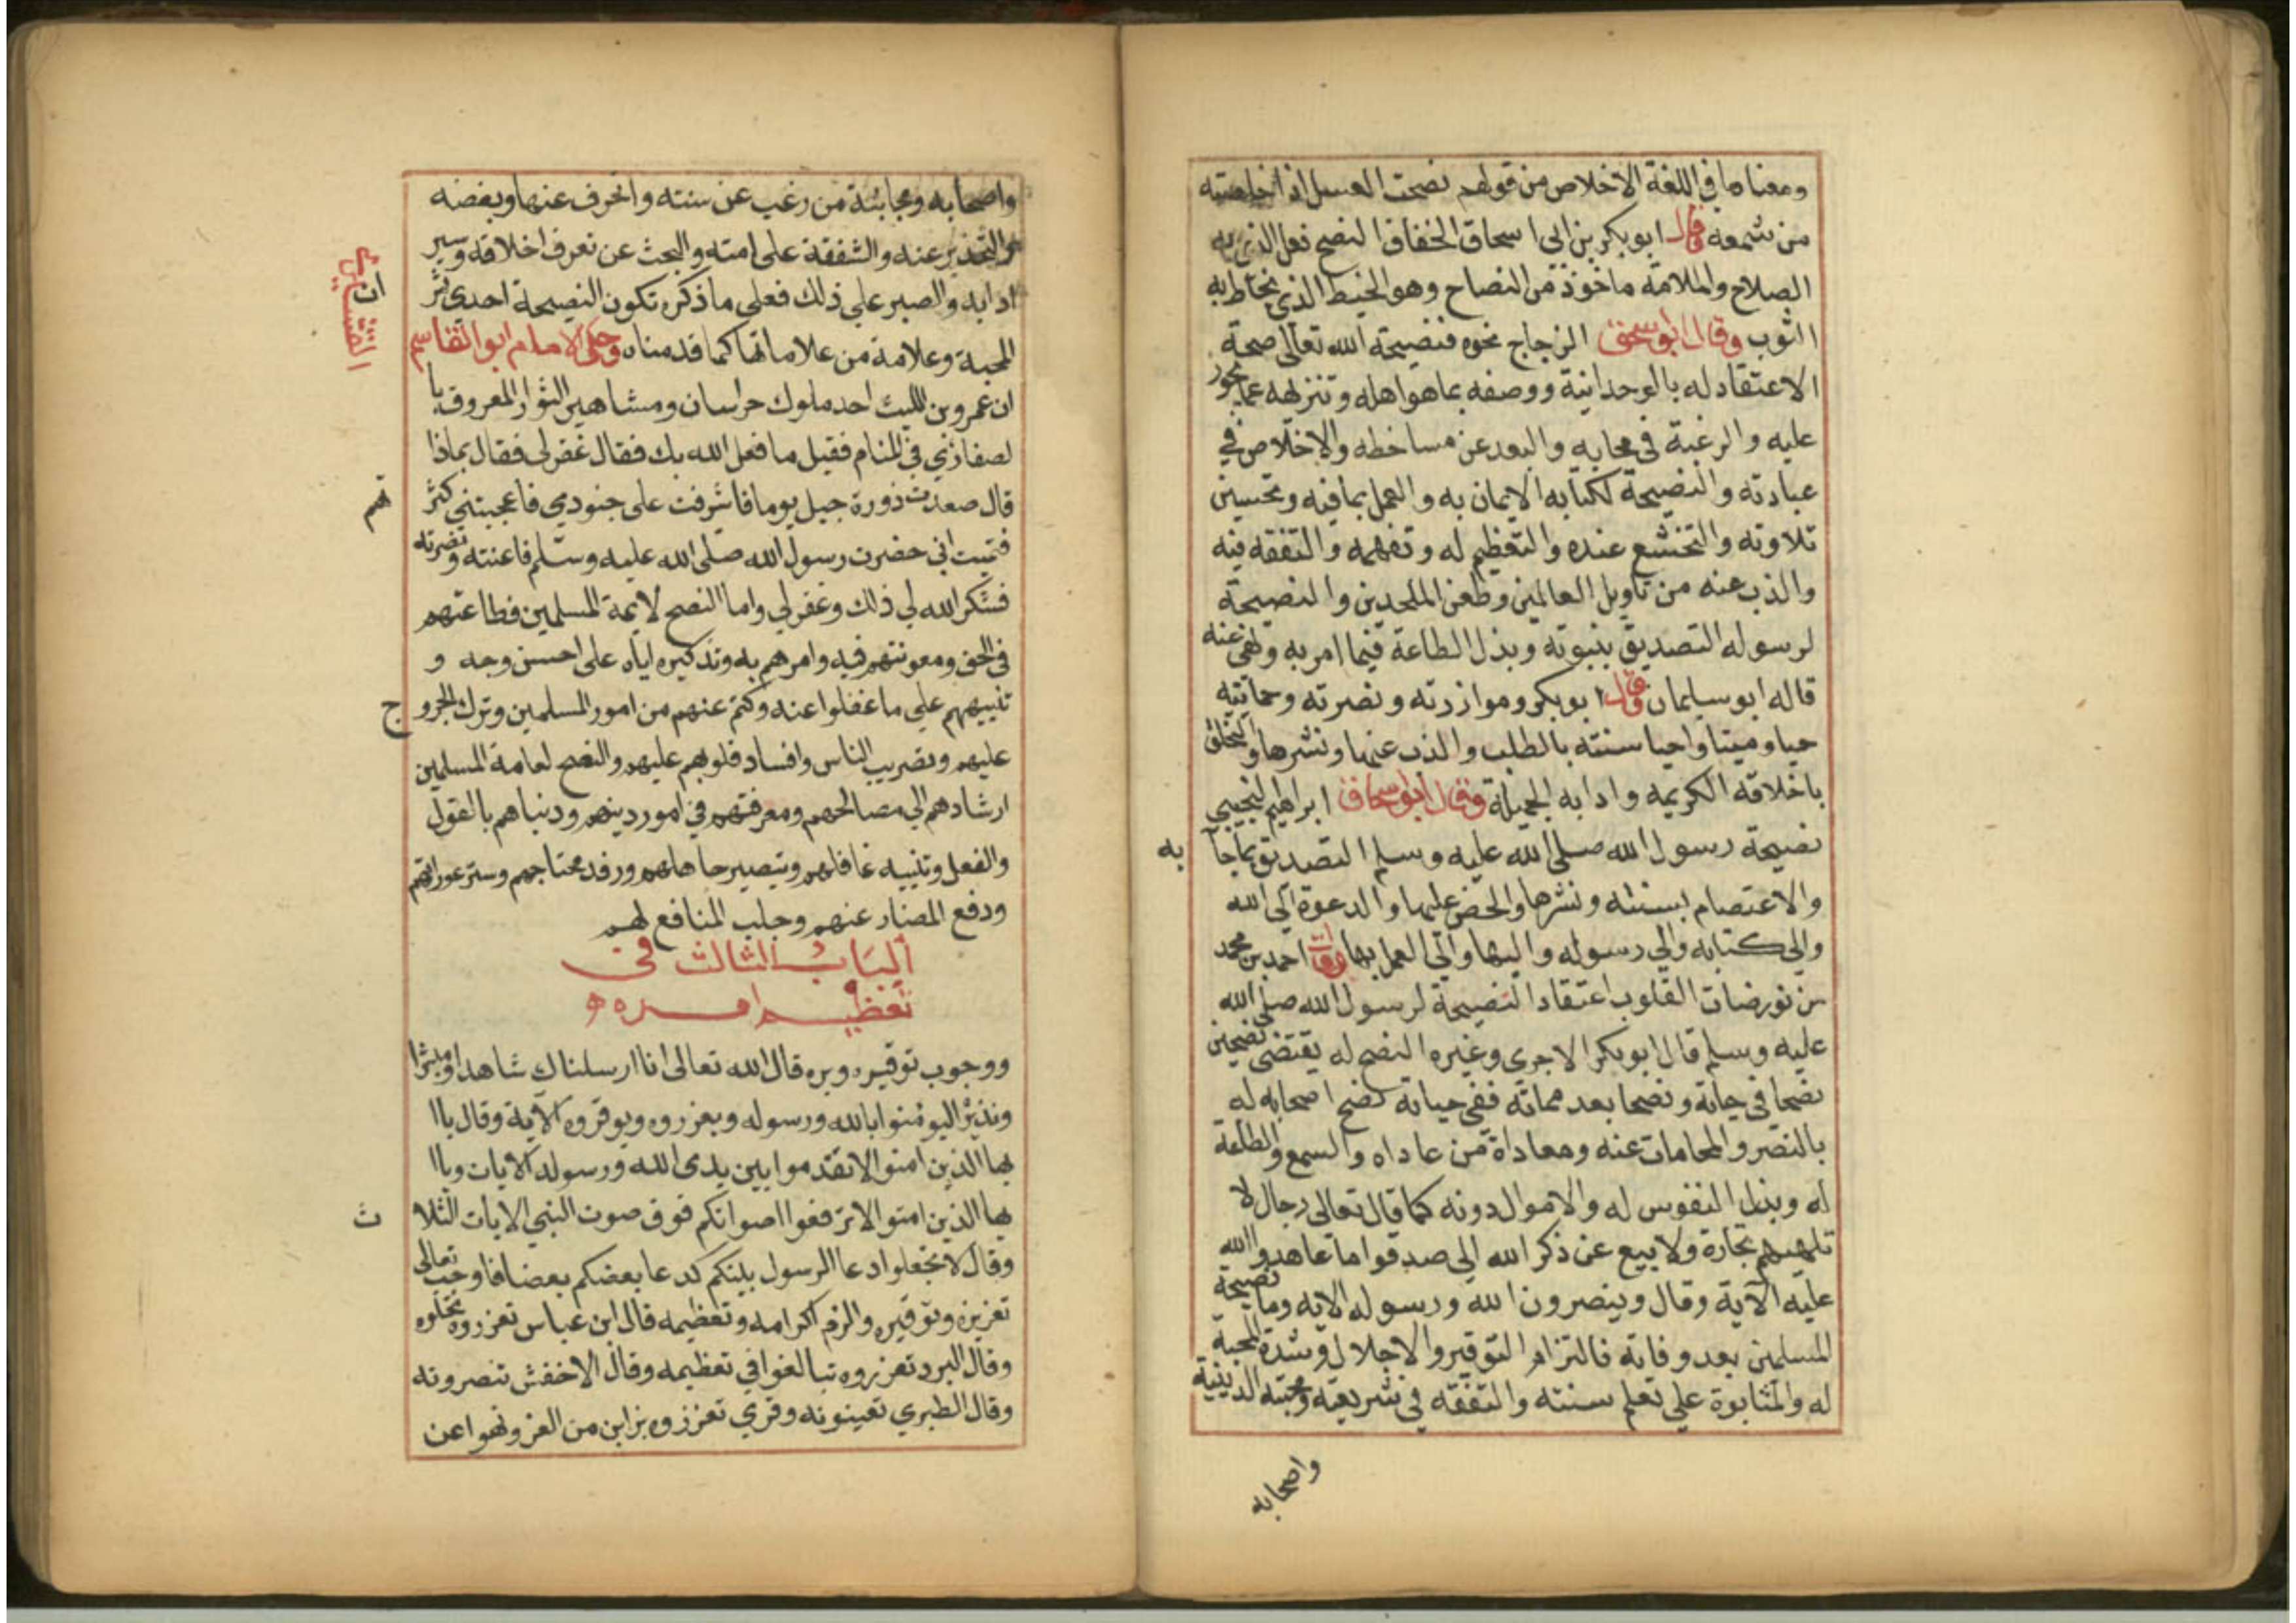 ومعناها في اللغة الاخلاص من قولهم نصحت العسل اذا اخلصته
من شمعه وقال ابو بكر بن ابي اسحاق الخفاف النصح فعل الذي به
الصلاح والملامة ماخوذ من النصاح وهو الخيط الذي يخاط به
الثوب وقال ابو سحق الزجاج نحوه فنصيحة الله تعالى صحة
الاعتقاد له بالوحدانية ووصفه بما هو اهله وتنزيهه عما يجوز
عليه والرغبة في محابه والبعد عن مساخطه والاخلاص في
عبادته والنصيحة لكتابه الايمان به والعمل بما فيه وتحسين
تلاوته والتخشع عنده والتعظيم له وتفهمه والتفقه فيه
والذب عنه من تاويل العالمين وطعن الملحدين والنصيحة
لرسوله التصديق بنبوته وبذل الطاعة فيما امر به ونهى عنه
قاله ابو سليمان وقال ابو بكر وموازرته ونصرته وحمايته
حيا وميتا واحيا سنته بالطلب والذب عنها ونشرها والتخلق
باخلاقه الكريمه وادابه الجميلة وقال ابو سحاق ابراهيم التجيبي
نصيحة رسول الله صلى الله عليه وسلم التصديق بما جآ
به
والاعتصام بسنته ونشرها والحض عليها والدعوة الى الله
والى كتابه والى رسوله واليها والى العمل بها وقال احمد بن محمد
من نورضات القلوب اعتقاد النصيحة لرسول الله صلى الله
عليه وسلم قال ابو بكر الاجري وغيره النصح له يقتضي نصحين
نصحا في حياته ونصحا بعد مماته ففي حياته نصح اصحابه له
بالنصر والمحامات عنه ومعاداة من عاداه والسمع والطاعة
له وبذل النفوس له والاموال دونه كما قال تعالى رجال لا
تلهيهم تجارة ولا بيع عن ذكر الله الى صدقوا ما عاهدوا الله
عليه الآية وقال وينصرون الله ورسوله الايه وما نصيحة
المسلمين بعد وفاته فالتزام التوقير والاجلال وشدة المحبة
له والمثابوة على تعلم سنته والتفقه في شريعته ومحبته الدينية
واصحابه
واصحابه ومجانبة من رغب عن سنته وانحرف عنها وبغضه
والتحذير عنه والشفقة على امته والبحث عن تعرف اخلاقه وسير
ادابه والصبر على ذلك فعلى ما ذكره تكون النصيحة احدى ثمر
المحبة وعلامة من علاماتها كما قدمناه وحكى الامام ابو القاسم
القشيري
ان
ان عمرو بن الليث احد ملوك خراسان ومشاهير الثوار المعروف با
لصفار رئي في المنام فقيل ما فعل الله بك فقال غفر لي فقال بماذا
قال صعدت ذورة جبل يوما فاشرفت على جنودي فاعجبتني كثر
تهم
فتمنيت اني حضرت رسول الله صلى الله عليه وسلم فاعنته ونصرته
فشكر الله لي ذلك وغفر لي واما النصح لايمة المسلمين فطاعتهم
في الحق ومعونتهم فيه وامرهم به وتذكيره اياه على احسن وجه و
تنبيههم على ما غفلوا عنه وكتم عنهم من امور المسلمين وترك الخرو
ج
عليهم وتضريب الناس وافساد قلوبهم عليهم والنصح لعامة المسلمين
ارشادهم الى مصالحهم ومعرفتهم في امور دينهم ودنياهم بالقول
والفعل وتنبيه غافلهم وتبصير جاهلهم ورفد محتاجهم وستر عوراتهم
ودفع المضار عنهم وجلب المنافع لهم
الباب الثالث في
تعظيم امره
ووجوب توقيره وبره قال الله تعالى انا ارسلناك شاهدا ومبشرا
ونذيرا ليومنوا بالله ورسوله ويعزروه ويوقروه الآية وقال ياا
يها الذين امنوا لا تقدموا بين يدى الله ورسوله الايات وياا
يها الذين امنوا لا ترفعوا اصواتكم فوق صوت النبي الايات الثلا
ث
وقال لا تجعلوا دعا الرسول بينكم كدعا بعضكم بعضا فاوجب تعالى
تعزيزه وتوقيره والزم اكرامه وتعظيمه قال ابن عباس تعزروه تجلوه
وقال المبرد تعزروه تبالغوا في تعظيمه وقال الاخفش تنصرونه
وقال الطبري تعينونه وقري تعززوه بزاين من العز ونهوا عن